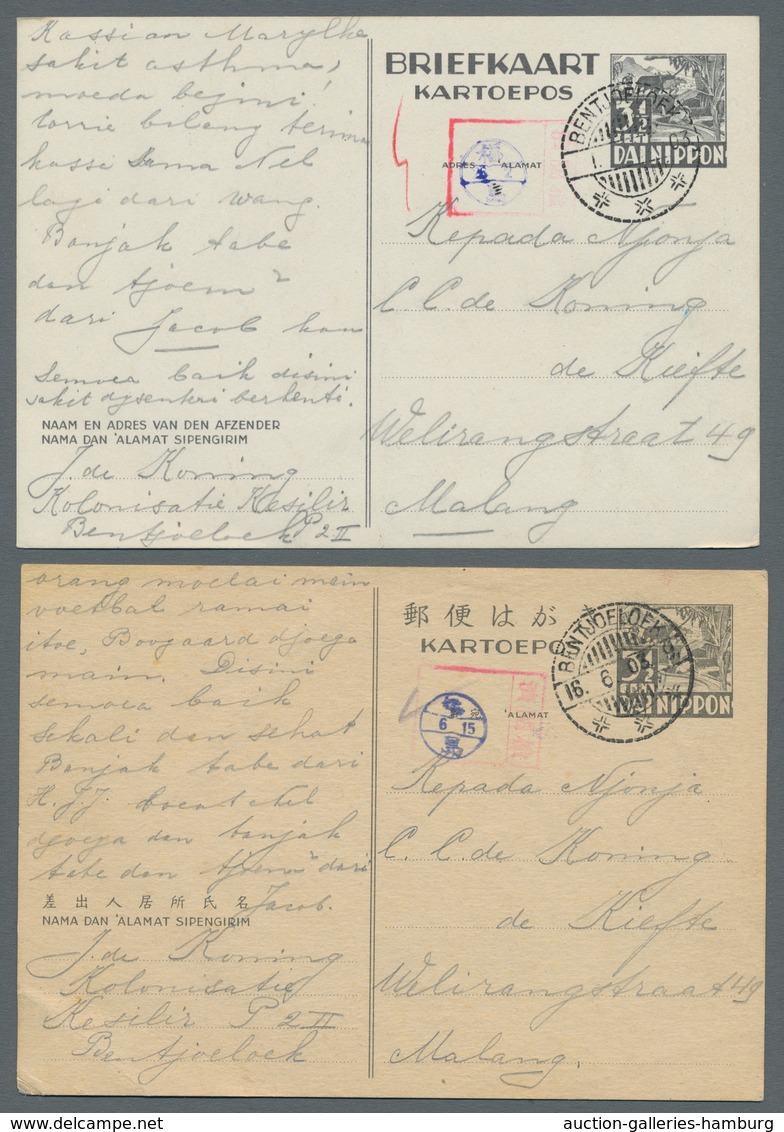 Kassian Marylke
sakit asthma,
moeda begini!
Corrie bilang terima
kassi Sama Nel
lagi dari wang.
Banjak tabe
dan tjoem²
dari Jacob
Semoea baik disini
sakit dysenteri berhenti.
NAAM EN ADRES VAN DEN AFZENDER
NAMA DAN 'ALAMAT SIPENGIRIM
J. de Koning
Kolonisatie Kesilir
Bentjoeloek P 2 II
BRIEFKAART
KARTOEPOS
3½
CENT
DAI NIPPON
BENTJOELOEK
03
ADRES
ALAMAT
2
Kepada Njonja
C. C. de Koning
de Kiefte
Welirangstraat 49
Malang
orang moelai main
voetbal ramai
itoe, Boogaard djoega
main. Disini
semoea baik
sekali dan sehat
Banjak tabe dari
H. J. J. Nel
djoega dan banjak
tabe dan tjoem² dari
Jacob.
差出人居所氏名
NAMA DAN 'ALAMAT SIPENGIRIM
J. de Koning
Kolonisatie
Kesilir P 2 II
Bentjoeloek
郵便はが
KARTOEPO
3½
CENT
DAI NIPPON
BENTJOELOEK
16. 6 03
'ALAMAT
6 15
Kepada Njonja
C. C. de Koning
de Kiefte
Welirangstraat 49
Malang.
auction-galleries-hamburg